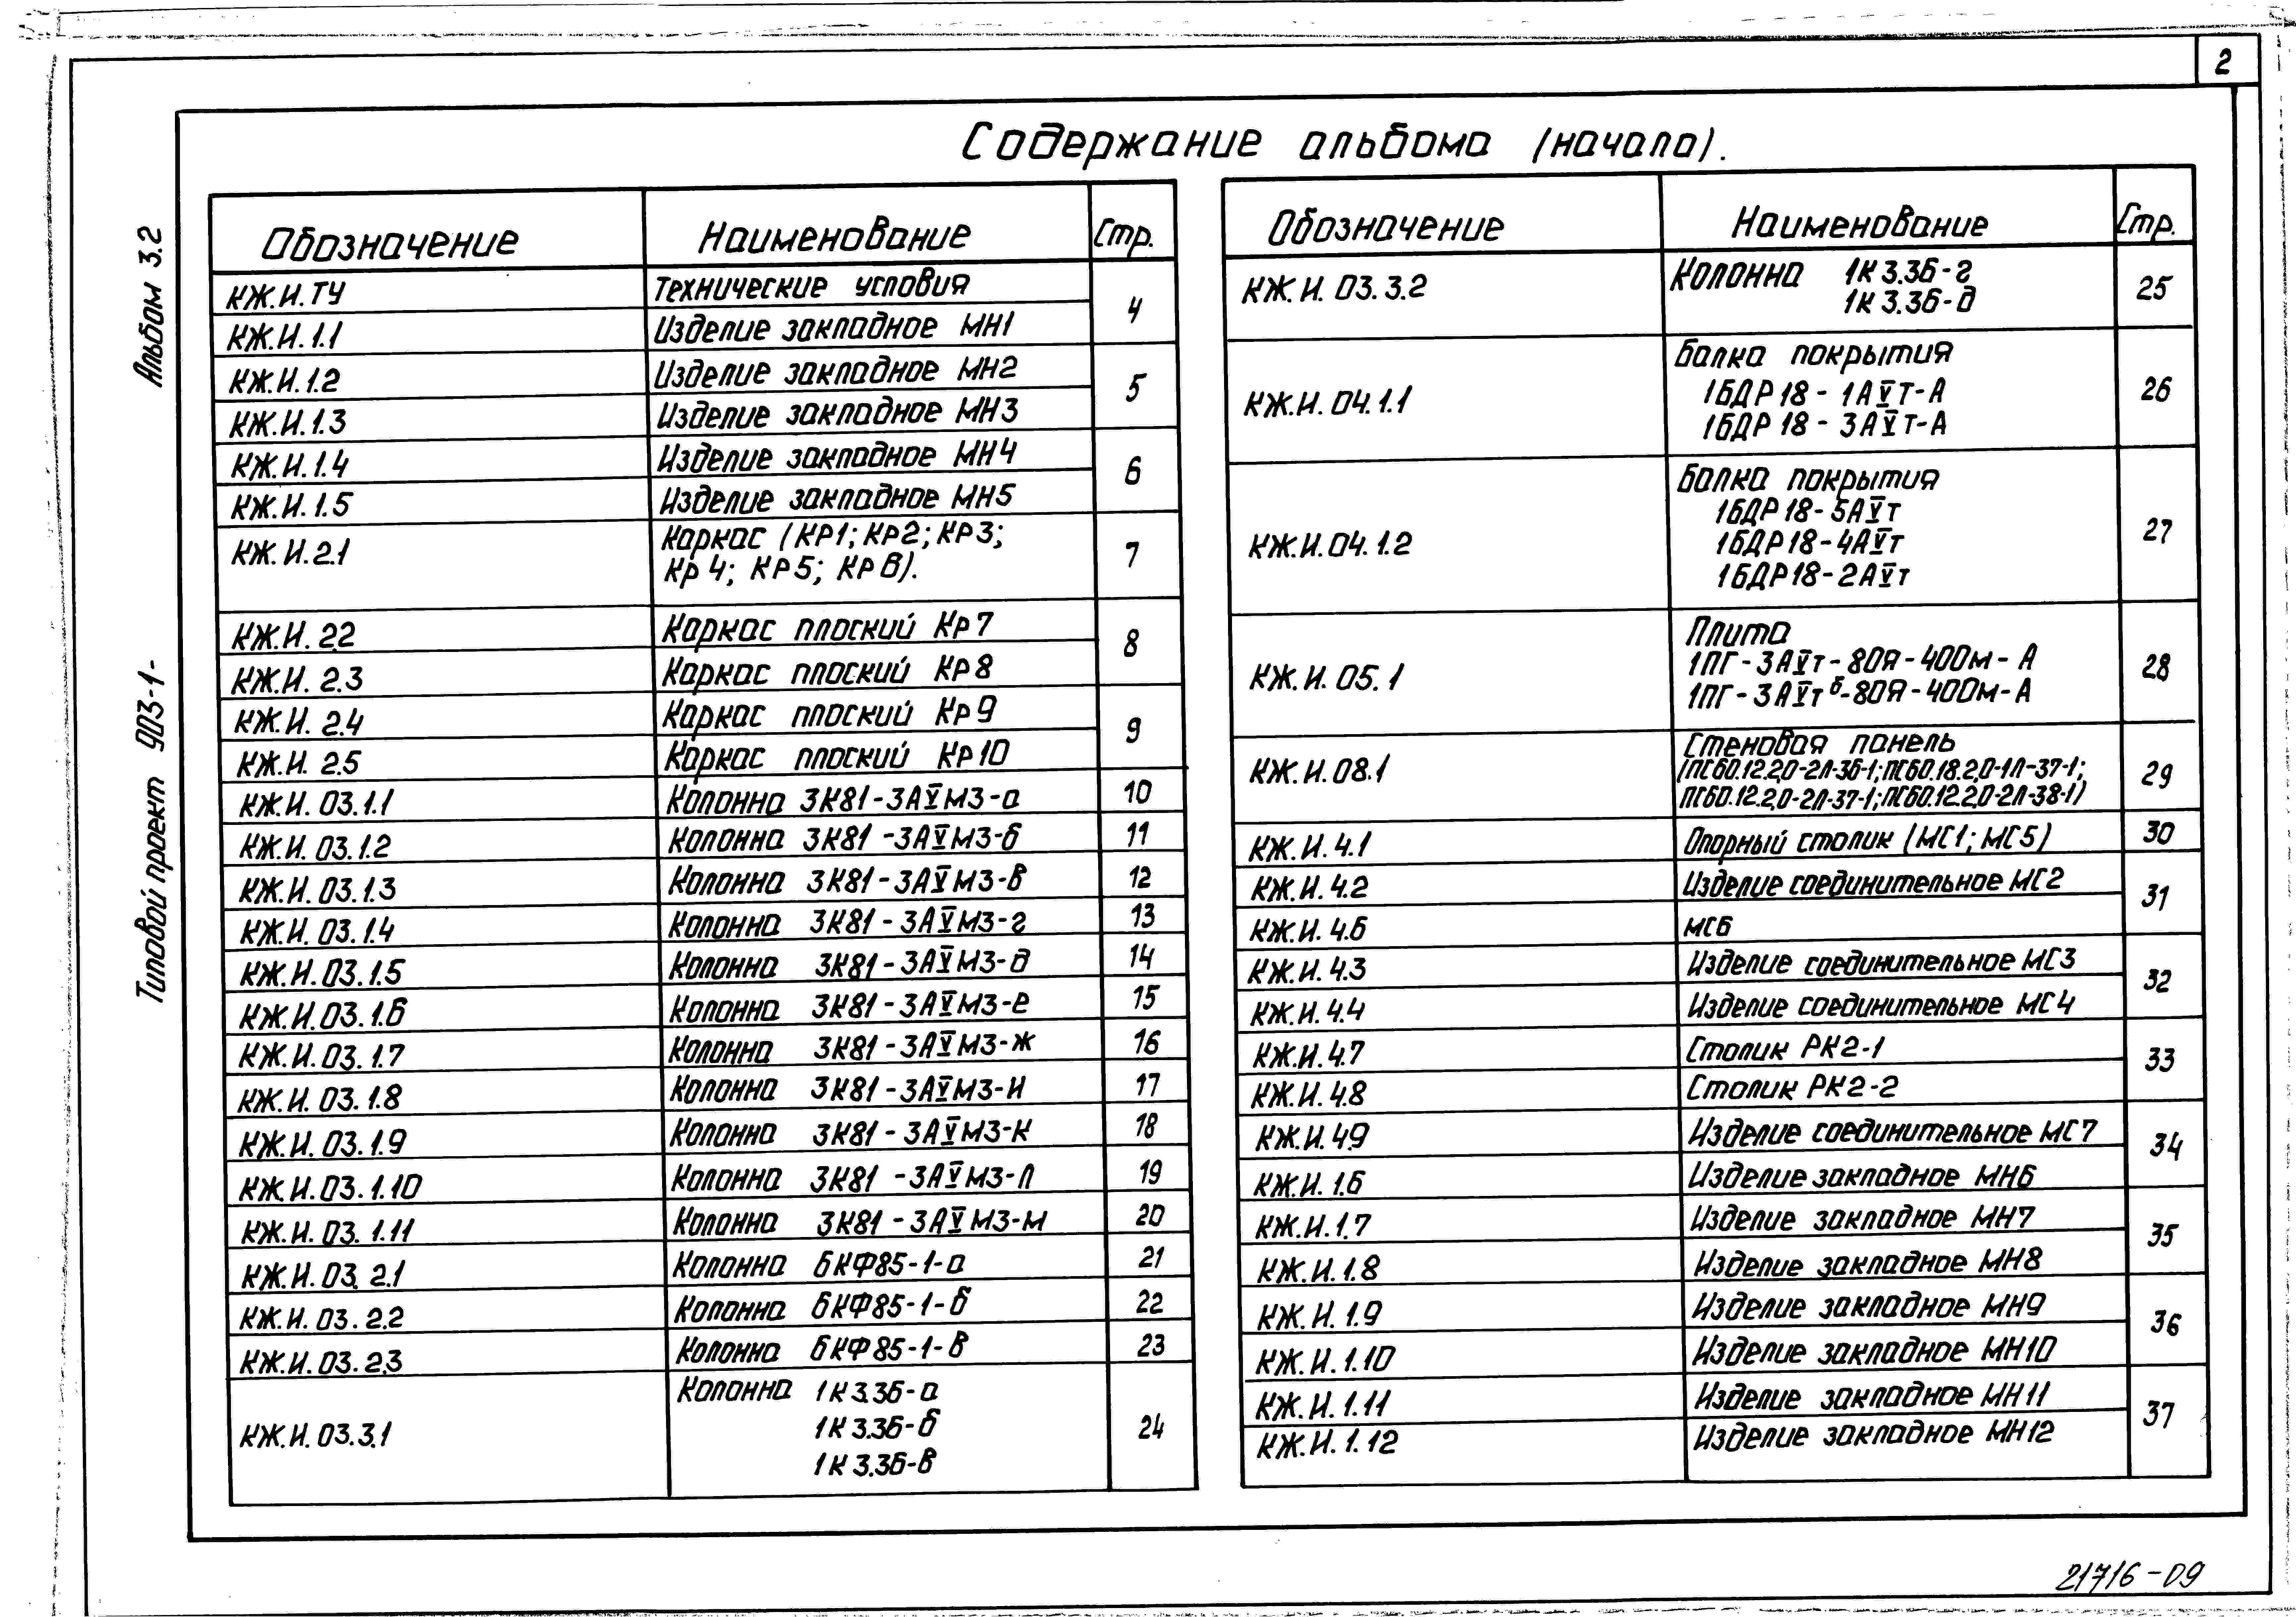 2
Содержание альбома (начало).
Альбом 3.2
Типовой проект 903-1-
Обозначение Наименование Стр.
КЖ.И.ТУ Технические условия 4
КЖ.И.1.1 Изделие закладное МН1
КЖ.И.1.2 Изделие закладное МН2 5
КЖ.И.1.3 Изделие закладное МН3
КЖ.И.1.4 Изделие закладное МН4 6
КЖ.И.1.5 Изделие закладное МН5
КЖ.И.2.1 Каркас (КР1; КР2; КР3; 7
Кр4; КР5; КР6).
КЖ.И.2.2 Каркас плоский Кр7 8
КЖ.И.2.3 Каркас плоский Кр8
КЖ.И.2.4 Каркас плоский Кр9 9
КЖ.И.2.5 Каркас плоский Кр10
КЖ.И.03.1.1 Колонна 3К81-3АⅤМ3-а 10
КЖ.И.03.1.2 Колонна 3К81-3АⅤМ3-б 11
КЖ.И.03.1.3 Колонна 3К81-3АⅤМ3-в 12
КЖ.И.03.1.4 Колонна 3К81-3АⅤМ3-г 13
КЖ.И.03.1.5 Колонна 3К81-3АⅤМ3-д 14
КЖ.И.03.1.6 Колонна 3К81-3АⅤМ3-е 15
КЖ.И.03.1.7 Колонна 3К81-3АⅤМ3-ж 16
КЖ.И.03.1.8 Колонна 3К81-3АⅤМ3-и 17
КЖ.И.03.1.9 Колонна 3К81-3АⅤМ3-к 18
КЖ.И.03.1.10 Колонна 3К81-3АⅤМ3-л 19
КЖ.И.03.1.11 Колонна 3К81-3АⅤМ3-м 20
КЖ.И.03.2.1 Колонна 6КФ85-1-а 21
КЖ.И.03.2.2 Колонна 6КФ85-1-б 22
КЖ.И.03.2.3 Колонна 6КФ85-1-в 23
КЖ.И.03.3.1 Колонна 1К3.36-а 24
1К3.36-б
1К3.36-в
Обозначение Наименование Стр.
КЖ.И.03.3.2 Колонна 1К3.36-г 25
1К3.36-д
КЖ.И.04.1.1 Балка покрытия 26
1БДР18-1АⅤт-А
1БДР18-3АⅤт-А
КЖ.И.04.1.2 Балка покрытия 27
1БДР18-5АⅤт
1БДР18-4АⅤт
1БДР18-2АⅤт
КЖ.И.05.1 Плита 28
1ПГ-3АⅤт-80Я-400м-А
1ПГ-3АⅤт б-80Я-400м-А
КЖ.И.08.1 Стеновая панель 29
(ПС60.12.2,0-2Л-36-1; ПС60.18.2,0-1Л-37-1;
ПС60.12.2,0-2Л-37-1; ПС60.12.2,0-2Л-38-1)
КЖ.И.4.1 Опорный столик (МС1; МС5) 30
КЖ.И.4.2 Изделие соединительное МС2 31
КЖ.И.4.6 МС6
КЖ.И.4.3 Изделие соединительное МС3 32
КЖ.И.4.4 Изделие соединительное МС4
КЖ.И.4.7 Столик РК2-1 33
КЖ.И.4.8 Столик РК2-2
КЖ.И.4.9 Изделие соединительное МС7 34
КЖ.И.1.6 Изделие закладное МН6
КЖ.И.1.7 Изделие закладное МН7 35
КЖ.И.1.8 Изделие закладное МН8
КЖ.И.1.9 Изделие закладное МН9 36
КЖ.И.1.10 Изделие закладное МН10
КЖ.И.1.11 Изделие закладное МН11 37
КЖ.И.1.12 Изделие закладное МН12
21716-09